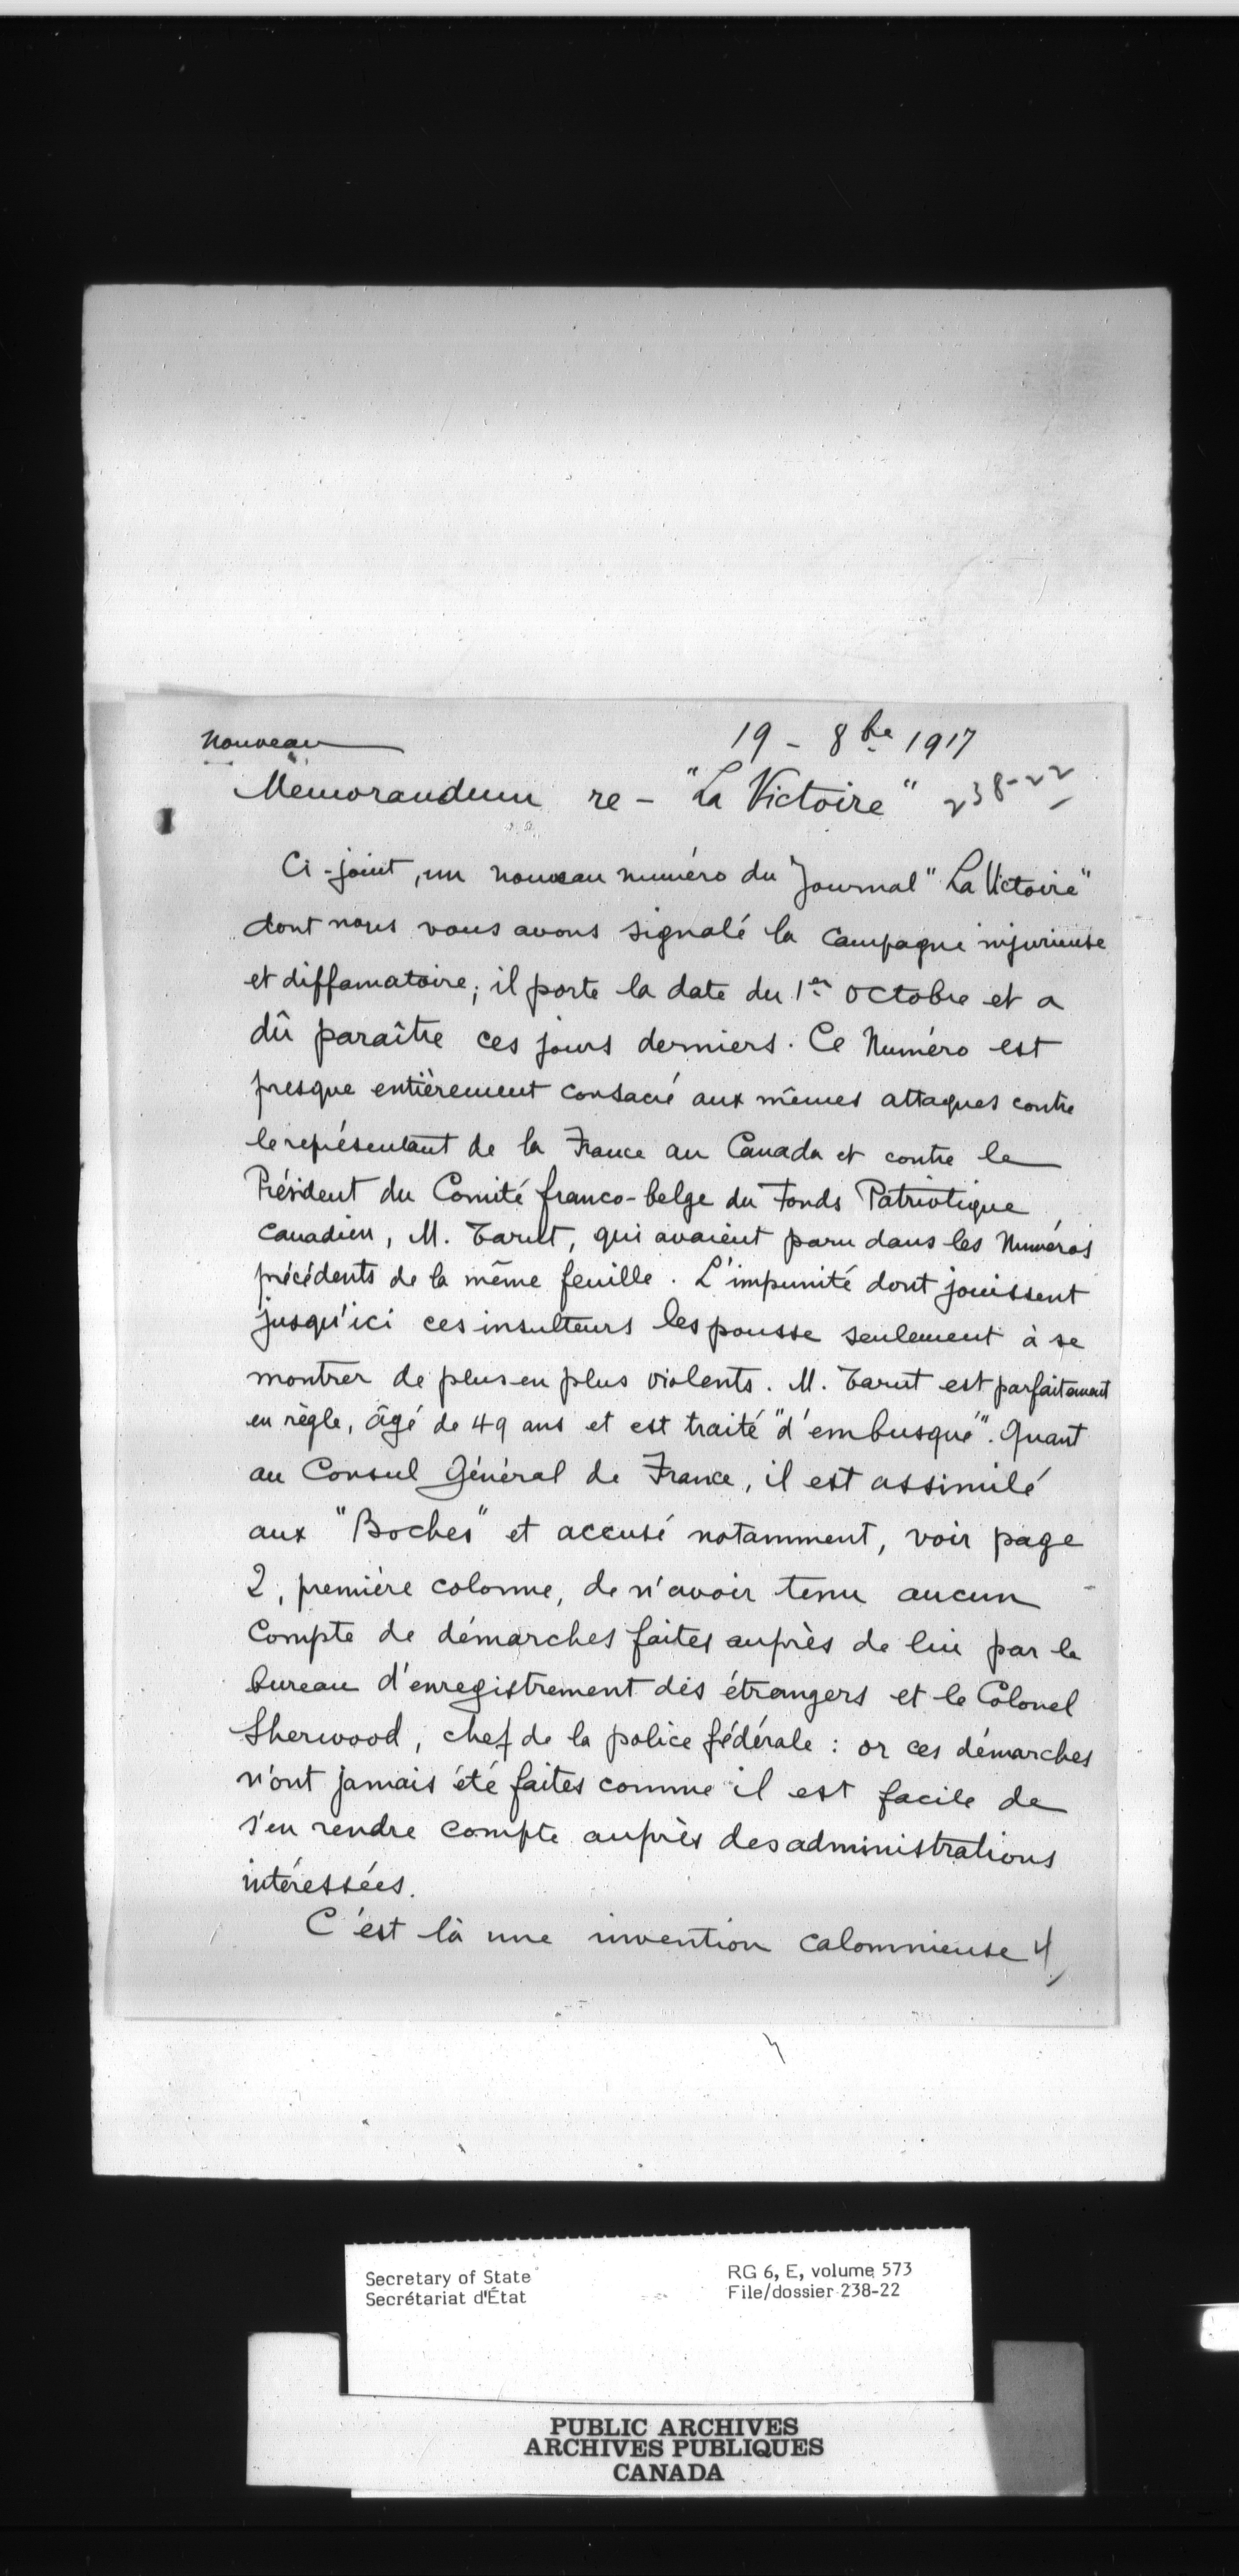 Nouveau
19 - 8bre 1917
Memorandum re - "La Victoire"
238-22
Ci-joint, un nouveau numéro du Journal "La Victoire"
dont nous vous avons signalé la campagne injurieuse
et diffamatoire; il porte la date du 1er octobre et a
dû paraître ces jours derniers. Ce Numéro est
presque entièrement consacré aux mêmes attaques contre
le représentant de la France au Canada et contre le
Président du Comité franco-belge du Fonds Patriotique
Canadien, M. Tarut, qui avaient paru dans les Numéros
précédents de la même feuille. L'impunité dont jouissent
jusqu'ici ces insulteurs les pousse seulement à se
montrer de plus en plus violents. M. Tarut est parfaitement
en règle, âgé de 49 ans et est traité "d'embusqué". Quant
au Consul Général de France, il est assimilé
aux "Boches" et accusé notamment, voir page
2, première colonne, de n'avoir tenu aucun
compte de démarches faites auprès de lui par le
bureau d'enregistrement des étrangers et le Colonel
Sherwood, chef de la police fédérale : or ces démarches
n'ont jamais été faites comme il est facile de
s'en rendre compte auprès des administrations
intéressées.
C'est là une invention calomnieuse
Secretary of State
Secrétariat d'État
RG 6, E, volume 573
File/dossier 238-22
PUBLIC ARCHIVES
ARCHIVES PUBLIQUES
CANADA